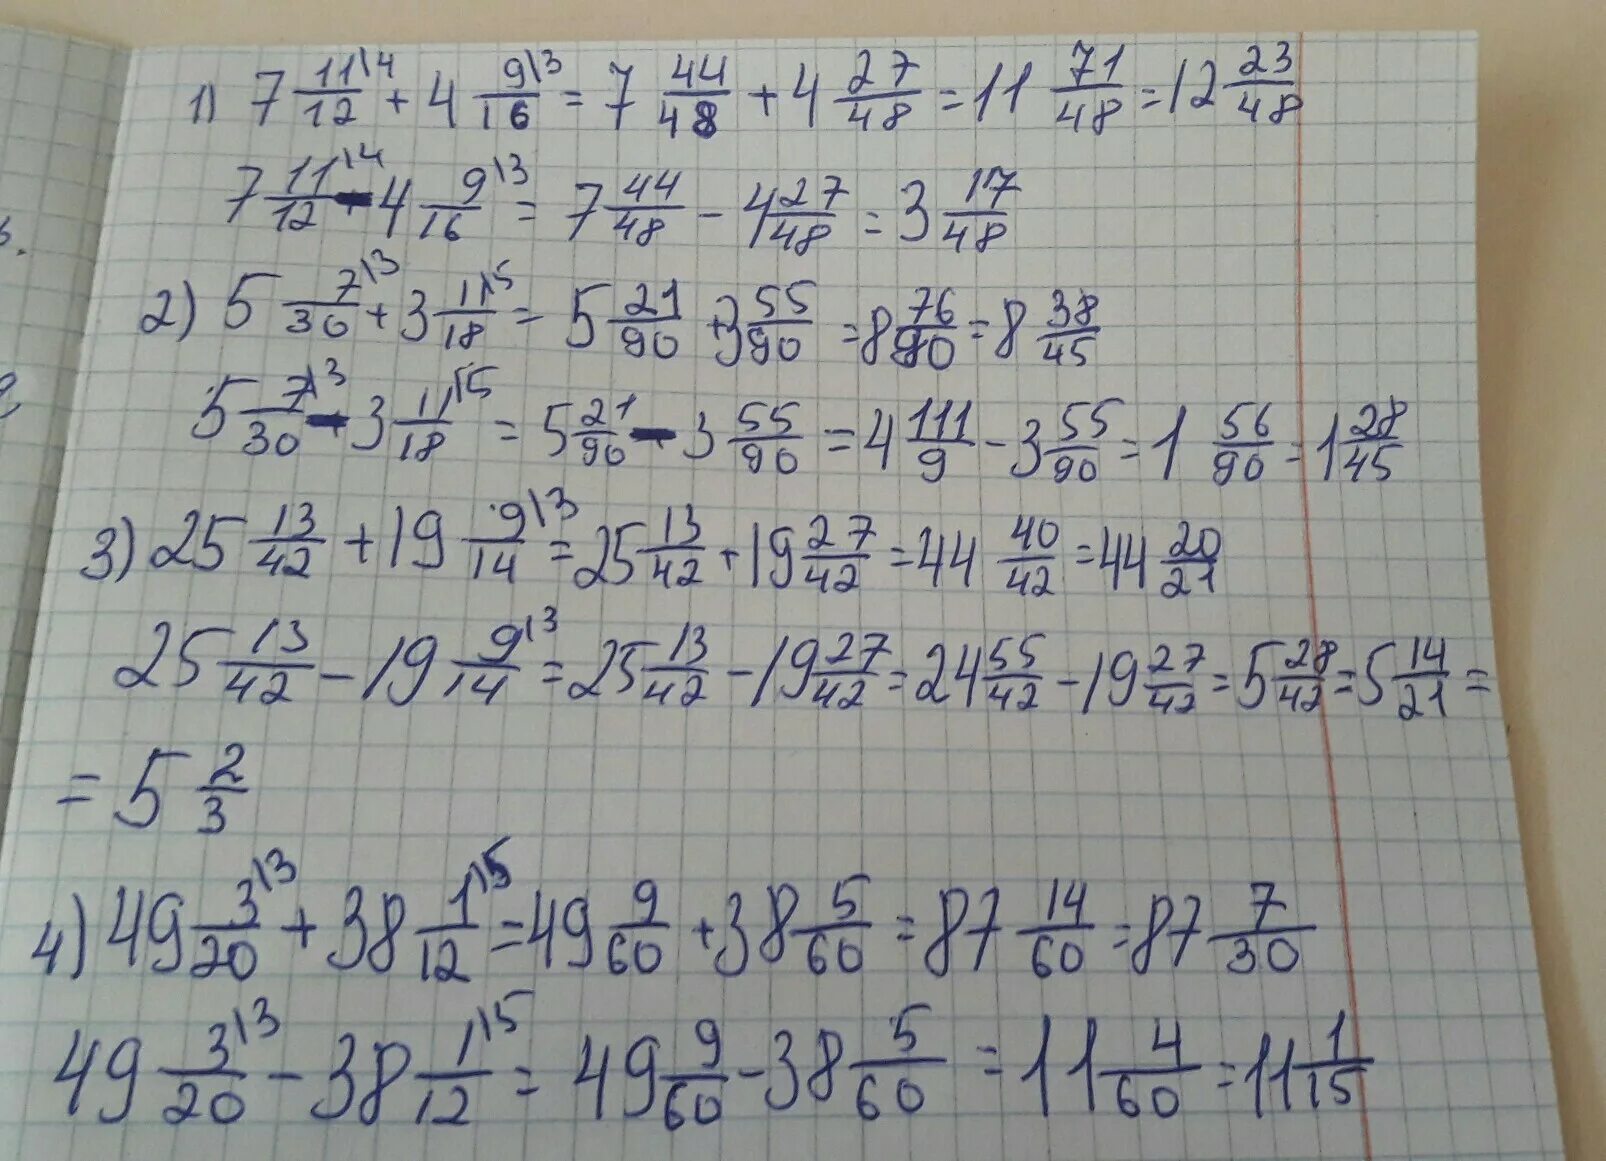 1) 7 11\4/12 + 4 9\3/16 = 7 44/48 + 4 27/48 = 11 71/48 = 12 23/48
7 11\4/12 - 4 9\3/16 = 7 44/48 - 4 27/48 = 3 17/48
2) 5 7\3/30 + 3 11\5/18 = 5 21/90 + 3 55/90 = 8 76/90 = 8 38/45
5 7\3/30 - 3 11\5/18 = 5 21/90 - 3 55/90 = 4 111/9 - 3 55/90 = 1 56/90 = 1 28/45
3) 25 13/42 + 19 9\3/14 = 25 13/42 + 19 27/42 = 44 40/42 = 44 20/21
25 13/42 - 19 9\3/14 = 25 13/42 - 19 27/42 = 24 55/42 - 19 27/42 = 5 28/42 = 5 14/21 =
= 5 2/3
4) 49 3\3/20 + 38 1\5/12 = 49 9/60 + 38 5/60 = 87 14/60 = 87 7/30
49 3\3/20 - 38 1\5/12 = 49 9/60 - 38 5/60 = 11 4/60 = 11 1/15